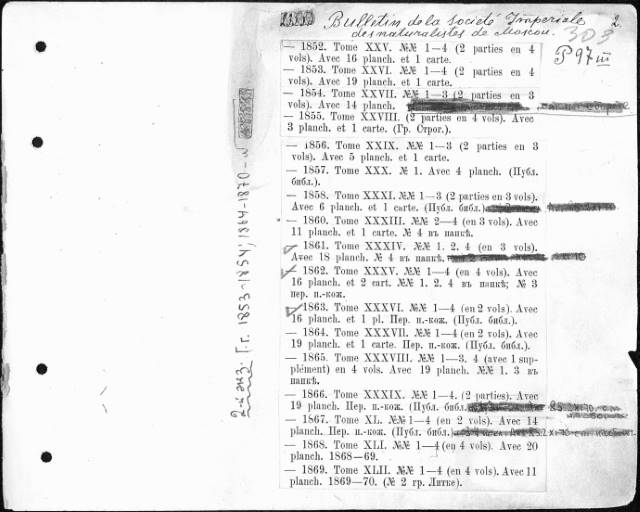 Bulletin de la Société Impériale 2.
des naturalistes de Moscou. 303
P 97 III
— 1852. Tome XXV. №№ 1—4 (2 parties en 4
vols). Avec 16 planch. et 1 carte.
— 1853. Tome XXVI. №№ 1—4 (2 parties en 4
vols). Avec 19 planch. et 1 carte.
— 1854. Tome XXVII. №№ 1—3 (2 parties en 3
vols). Avec 14 planch.
— 1855. Tome XXVIII. (2 parties en 4 vols). Avec
3 planch. et 1 carte. (Гр. Строг.).
— 1856. Tome XXIX. №№ 1—3 (2 parties en 3
vols). Avec 5 planch. et 1 carte.
— 1857. Tome XXX. № 1. Avec 4 planch. (Публ.
библ.).
— 1858. Tome XXXI. №№ 1—3 (2 parties en 3 vols).
Avec 6 planch. et 1 carte. (Публ. библ.)
— 1860. Tome XXXIII. №№ 2—4 (en 3 vols). Avec
11 planch. et 1 carte. № 4 въ папкѣ.
— 1861. Tome XXXIV. №№ 1. 2. 4 (en 3 vols).
Avec 18 planch. № 4 въ папкѣ.
— 1862. Tome XXXV. №№ 1—4 (en 4 vols). Avec
16 planch. et 2 cart. № 1. 2. 4 въ папкѣ; № 3
пер. п.-кож.
— 1863. Tome XXXVI. №№ 1—4 (en 2 vols). Avec
16 planch. et 1 pl. Пер. п.-кож. (Публ. библ.).
— 1864. Tome XXXVII. №№ 1—4 (en 2 vols). Avec
19 planch. et 1 carte. Пер. п.-кож. (Публ. библ.).
— 1865. Tome XXXVIII. №№ 1—3. 4 (avec 1 sup-
plément) en 4 vols. Avec 19 planch. №№ 1. 3 въ
папкѣ.
— 1866. Tome XXXIX. №№ 1—4. (2 parties). Avec
19 planch. Пер. п.-кож. (Публ. библ.
— 1867. Tome XL. №№ 1—4 (en 2 vols). Avec 14
planch. Пер. п.-кож. (Публ. библ.)
— 1868. Tome XLI. №№ 1—4 (en 4 vols). Avec 20
planch. 1868—69.
— 1869. Tome XLII. №№ 1—4 (en 4 vols). Avec 11
planch. 1869—70. (№ 2 гр. Литке).
2-й экз. Г.г. 1853-1854; 1864-1870-и